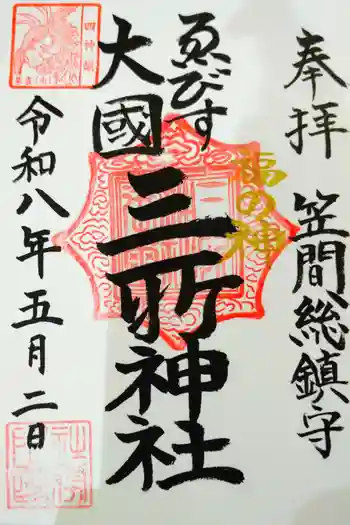 奉拝
笠間総鎮守
ゑびす
大國
三所神社
福の神
令和八年五月二日
四神